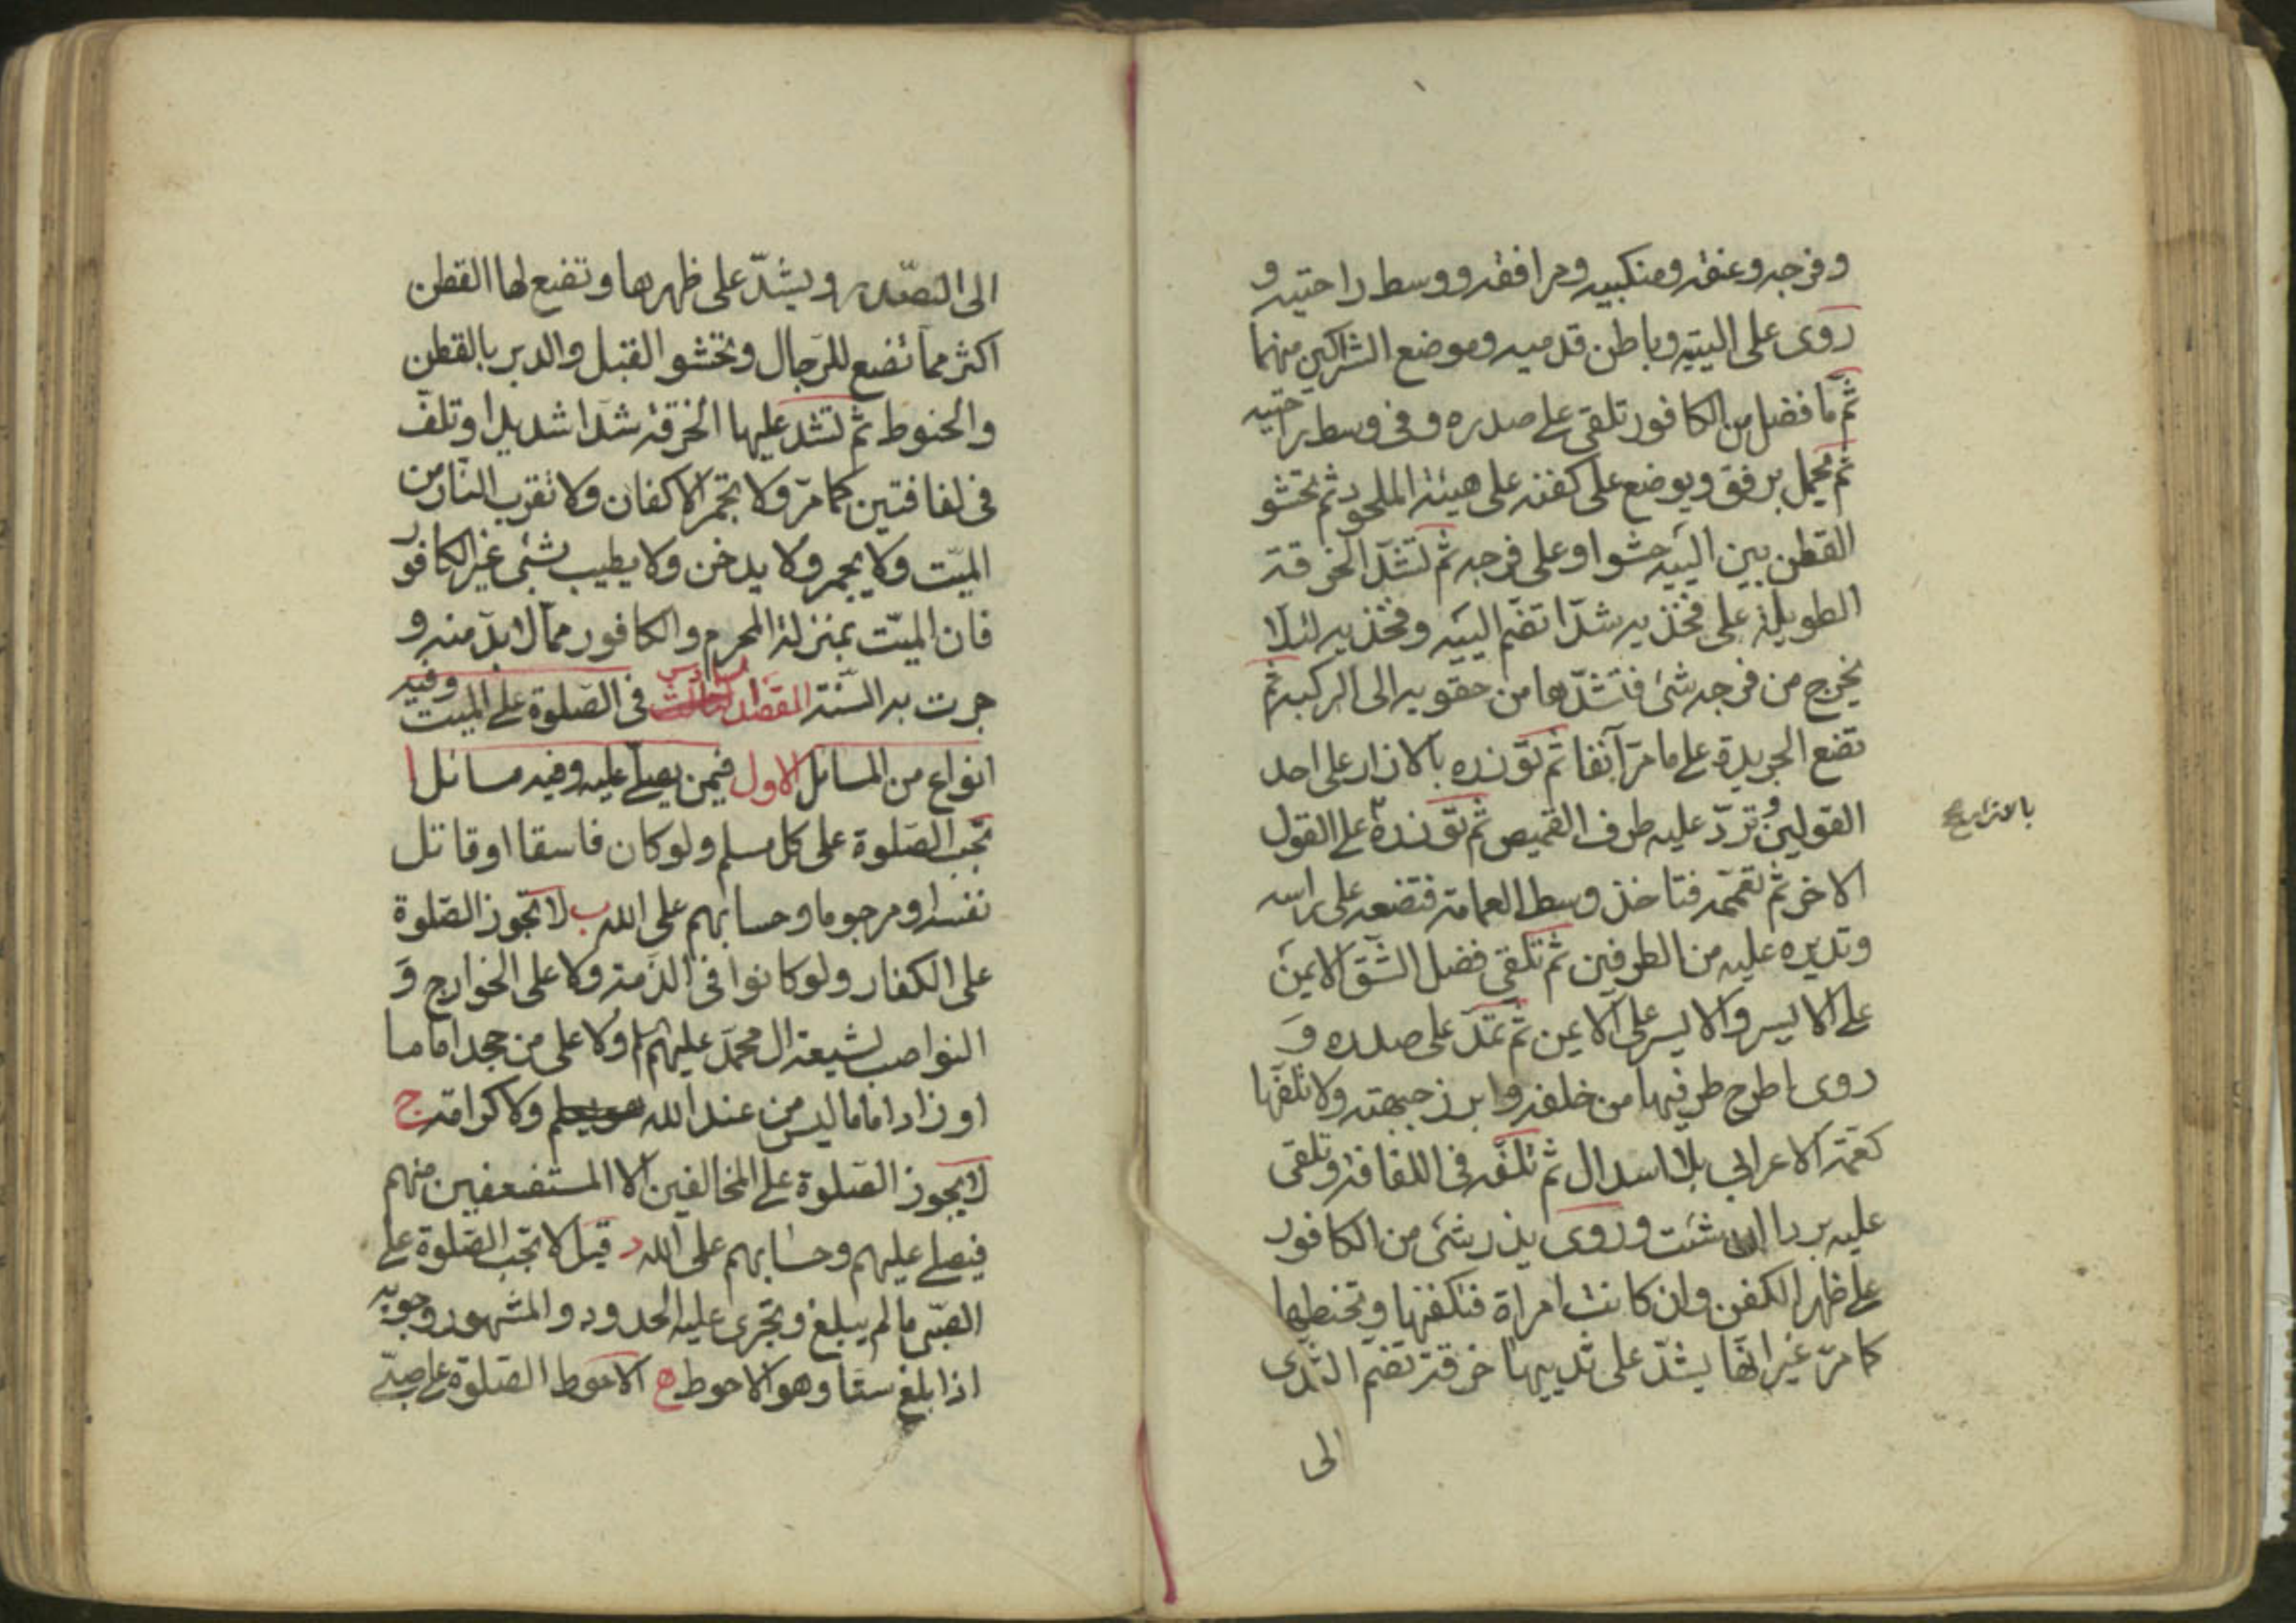 وفرجه وعنقه ومنكبيه ومرافقه ووسط راحتيه و
روى على اليتيه وباطن قدميه وموضع الشراكين منهما
ثم ما فضل من الكافور تلقى على صدره وفى وسط راحتيه
ثم يحمل برفق ويوضع على كفنه على هيئة الملحود ثم تحشو
القطن بين اليتيه حشوا وعلى فرجه ثم تشد الخرقة
الطويلة على فخذيه شدّا تضم اليتيه وفخذيه لئلا
يخرج من فرجه شئ فتشدّها من حقويه الى الركبه ثم
تضع الجريدة على ما مرّ آنفا ثم توزره بالازار على احد
القولين وتردّ عليه طرف القميص ثم توزره على القول
بالازار صح
الاخر ثم تعممه فتاخذ وسط العمامة فتضعه على راسه
وتديره عليه من الطرفين ثم تلقى فضل الشق الايمن
على الايسر والايسر على الايمن ثم تمدّ على صدره و
روى اطرح طرفيها من خلفه وابرز جبهته ولا تلفها
كعمّة الاعرابى بلا اسدال ثم تلفه فى اللفافة وتلقى
عليه بردا ان شئت وروى يذر شئ من الكافور
على ظهر الكفن وان كانت امراة فتكفنها وتحنطها
كما مرّ غير انها يشدّ على ثدييها خرقة تضم الثدى
الى
الى الصّدر ويشدّ على ظهرها وتضع لها القطن
اكثر مما تضع للرجال وتحشو القبل والدبر بالقطن
والحنوط ثم تشد عليها الخرقة شدا شديدا وتلف
فى لفافتين كما مرّ ولا تجمّر الاكفان ولا تقرب النار من
الميّت ولا يجمر ولا يدخن ولا يطيب بشئ غير الكافور
فان الميّت بمنزلة المحرم والكافور مما لا بدّ منه و
جرت به السّنة المقصد السادس فى الصّلوة على الميت وفيه
انواع من المسائل الاول فيمن يصلّى عليه وفيه مسائل ا
تجب الصّلوة على كل مسلم ولو كان فاسقا او قاتل
نفسه او مرجوما وحسابهم على الله ب لا تجوز الصّلوة
على الكفار ولو كانوا فى الذّمة ولا على الخوارج و
النواصب لشيعة ال محمّد عليهم ولا على من جحد اماما
او زاد اماما ليس من عند الله ولا كرامة ج
لا يجوز الصّلوة على المخالفين الا المستضعفين منهم
فيصلى عليهم وحسابهم على الله د قيل لا تجب الصّلوة على
الصّبى ما لم يبلغ وتجرى عليه الحدود والمشهور وجوبه
اذا بلغ ستّا وهو الاحوط ه الاحوط الصّلوة على صبىّ